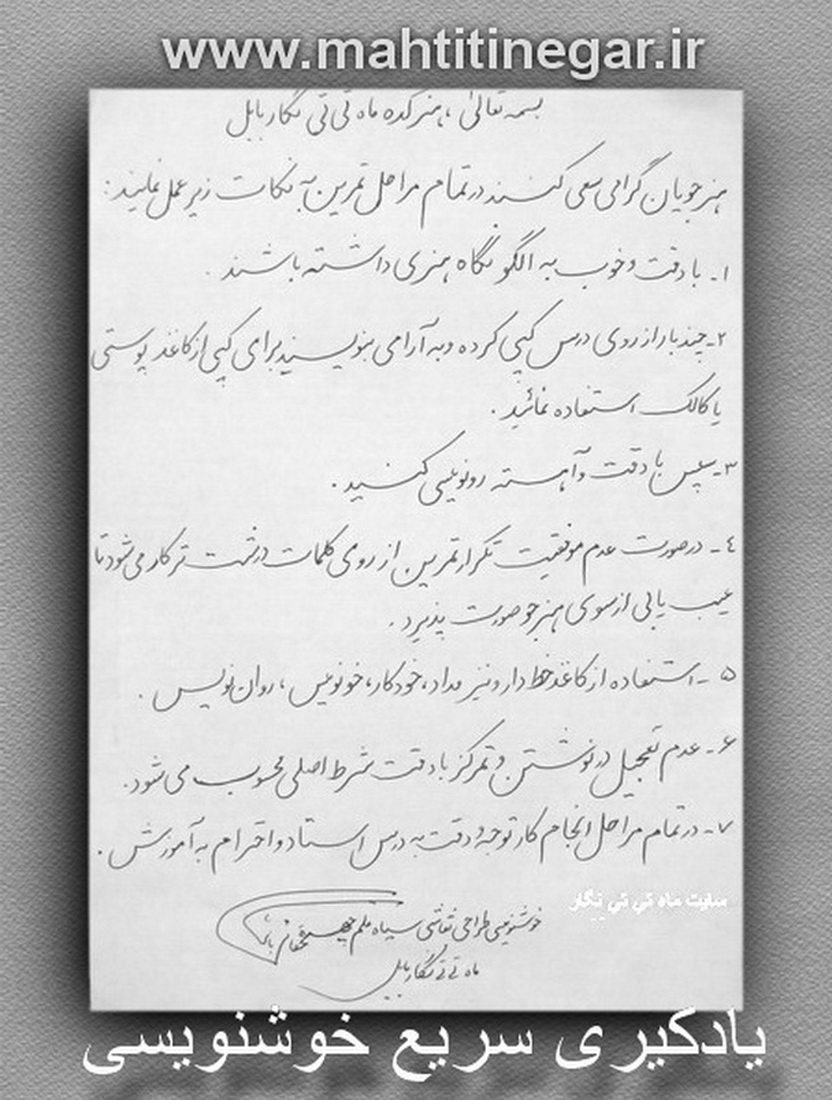 www.mahtitinegar.ir
بسمه تعالی ، هنرکده ماه تی تی نگار بابل
هنرجویان گرامی سعی کنند در تمام مراحل تمرین به نکات زیر عمل نمایند :
۱- با دقت و خوب به الگو نگاه هنری داشته باشند .
۲- چند بار از روی درس کپی کرده و به آرامی بنویسند برای کپی از کاغذ پوستی
یا کالک استفاده نمائید .
۳- سپس با دقت و آهسته رونویسی کنید .
٤- در صورت عدم موفقیت تکرار تمرین از روی کلمات درشت تر کار می شود تا
عیب یابی از سوی هنرجو صورت پذیرد .
۵- استفاده از کاغذ خط دار و نیز مداد ، خودکار ، خونویس ، روان نویس .
۶- عدم تعجیل در نوشتن و تمرکز با دقت شرط اصلی محسوب می شود .
۷- در تمام مراحل انجام کار توجه و دقت به درس استاد و احترام به آموزش .
سایت ماه تی تی نگار
خوشنویسی طراحی نقاشی سیاه قلم چهره
ماه تی تی نگار بابل
یادگیری سریع خوشنویسی